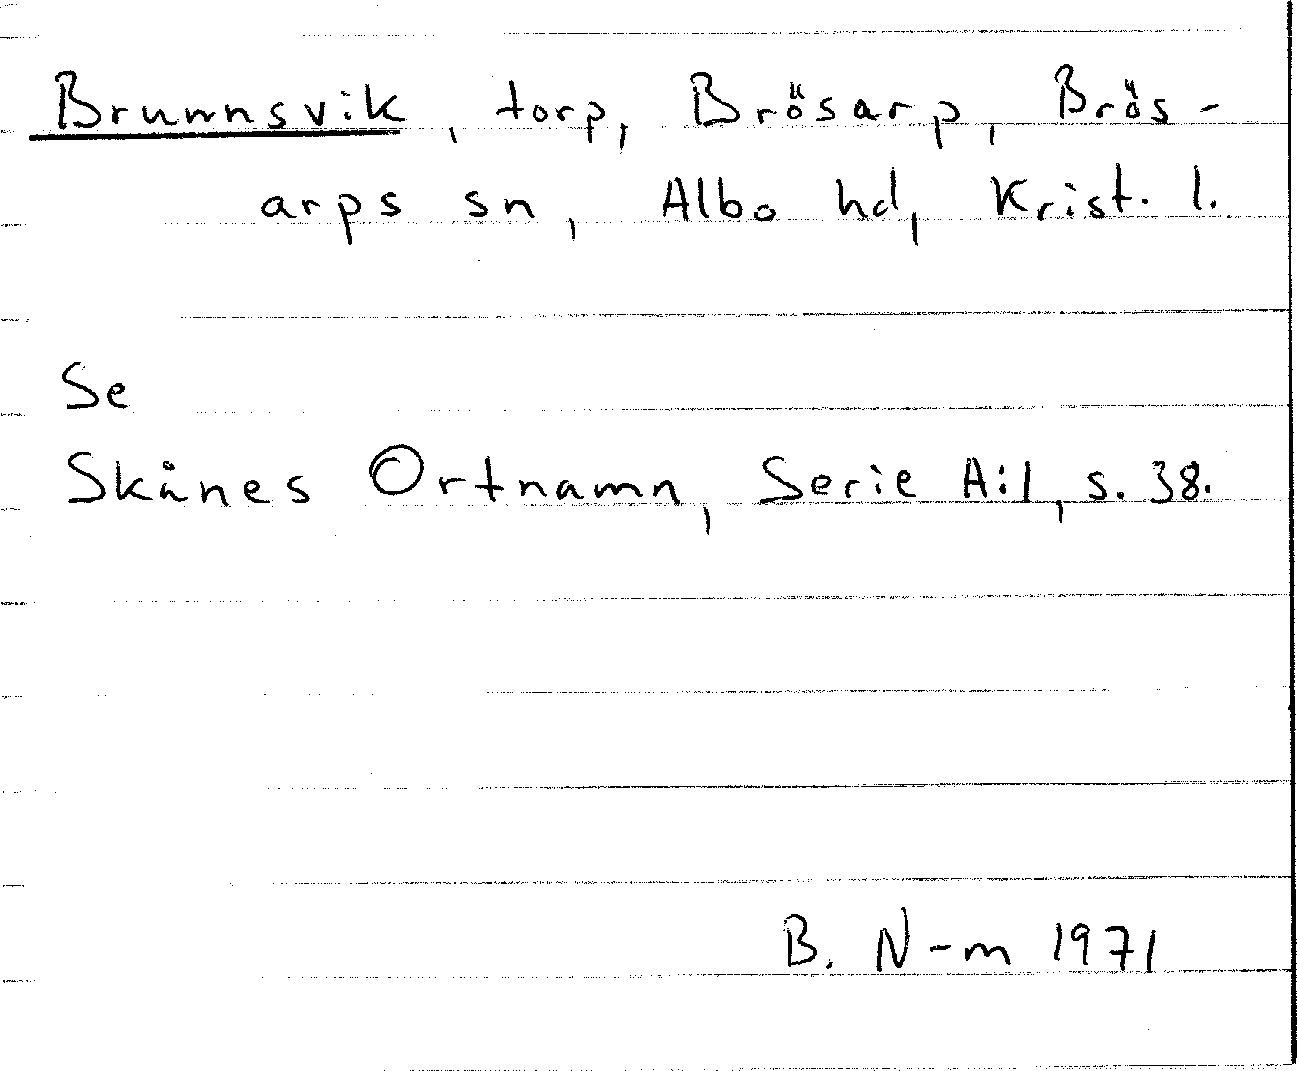 Brunnsvik, torp, Brösarp, Brös-
arps sn, Albo hd, Krist. l.
Se
Skånes Ortnamn, Serie A:1, s. 38.
B. N-m 1971